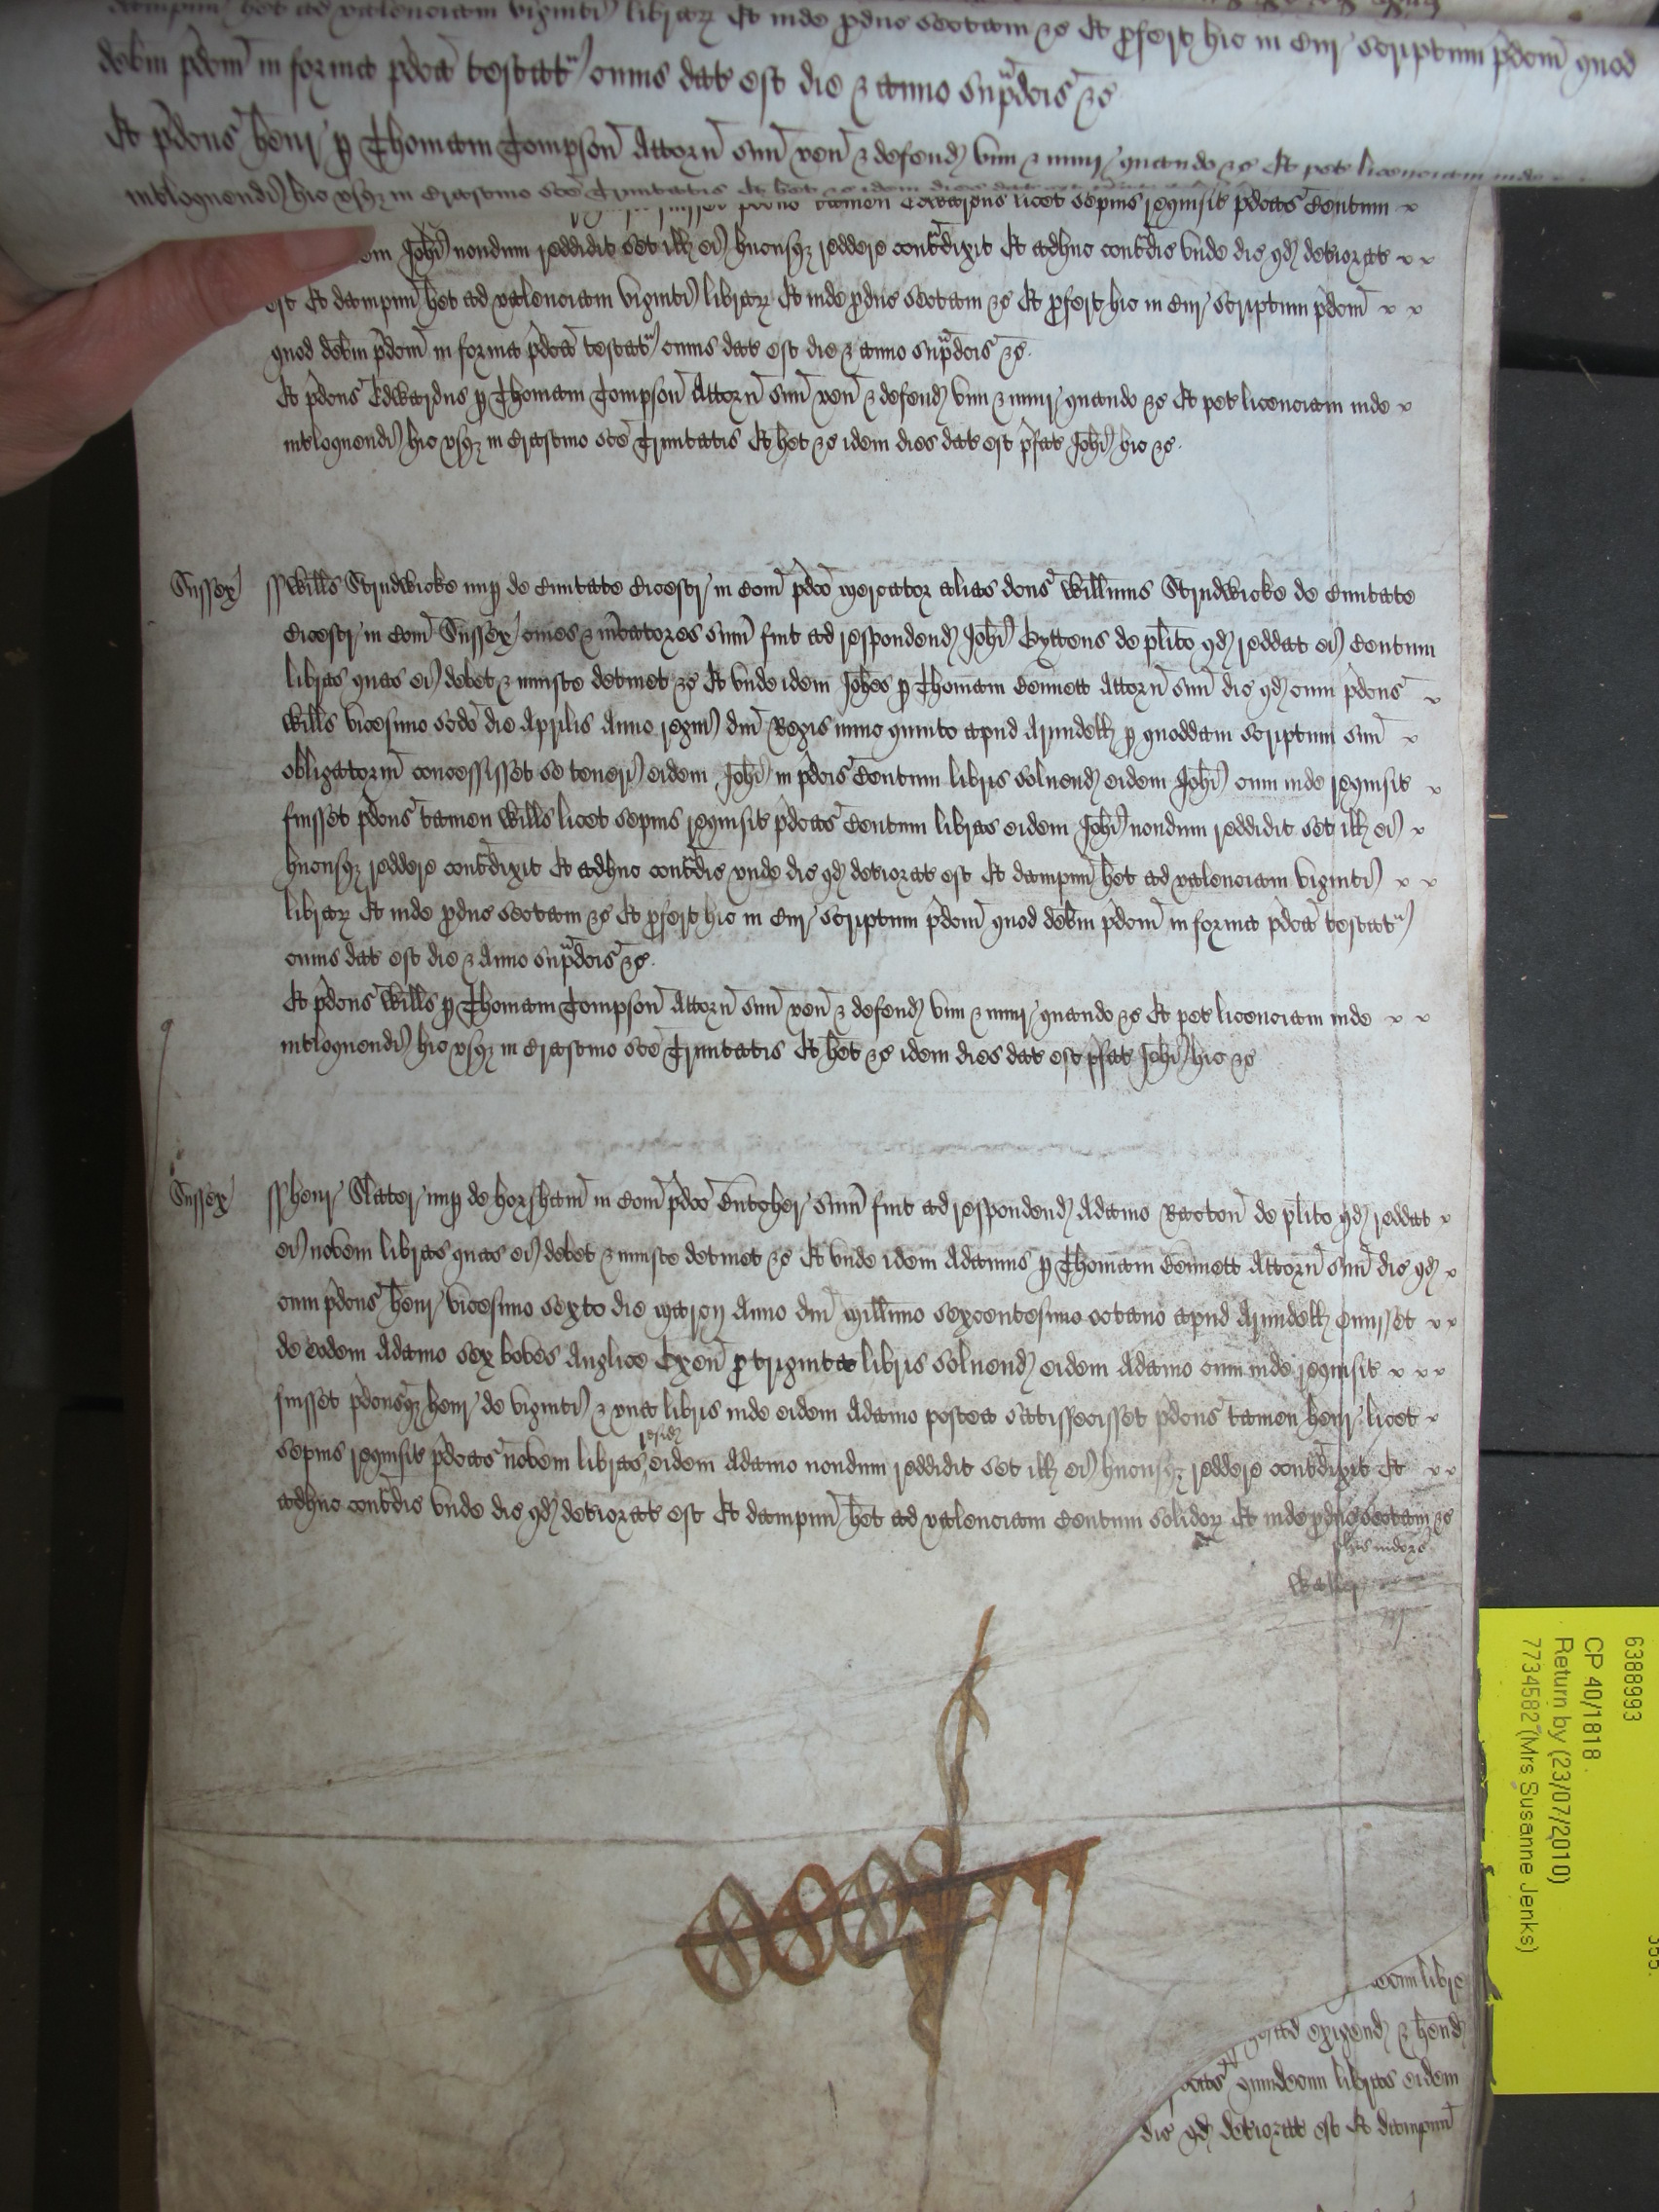 dampnu het ad valenciam viginti librar Et inde pduc sectam &c Et pfert hic in Cur scriptum pdcm quod
debm pdcm in forma pdca testat cuius dat est die & anno supdcis &c
Et pdcus Henr p Thomam Tompson Attorn suu ven & defend vim & iniur quando &c Et pet licenciam inde
intloquendi hic usq in Crastino sce Trinitatis Et het &c idem dies dat est
pdcus tamen Edwardus licet sepius requisit pdcas Centum
Johi nondum reddidit set ill ei hucusq reddere contradixit Et adhuc contradic unde dic qd deteriorat
est Et dampnu het ad valenciam viginti librar Et inde pduc sectam &c Et pfert hic in Cur scriptum pdcm
quod debm pdcm in forma pdca testat cuius dat est die & anno supdcis &c.
Et pdcus Edwardus p Thomam Tompson Attorn suu ven & defend vim & iniur quando &c Et pet licenciam inde
intloquendi hic usq in Crastino sce Trinitatis Et het &c idem dies dat est pfat Johi hic &c.
Sussex ss Willus Strudwicke nup de Civitate Cicestr in Com pdco Mercator alias dcus Willimus Strudwicke de Civitate
Cicestr in Com Sussex sum fuit ad respondend Johi Byttens de plito qd reddat ei Centum
libras quas ei debet & iniuste detinet &c Et unde idem Johes p Thomam Bennett Attorn suu dic qd cum pdcus
Willus vicesimo scdo die Aprilis Anno regni dni Regis nunc quinto apud Arundell p quoddam scriptum suu
obligatoriu concessisset se teneri eidem Johi in pdcis Centum libris solvend eidem Johi cum inde requisit
fuisset pdcus tamen Willus licet sepius requisit pdcas Centum libras eidem Johi nondum reddidit set ill ei
hucusq reddere contradixit Et adhuc contradic unde dic qd deteriorat est Et dampnu het ad valenciam viginti
librar Et inde pduc sectam &c Et pfert hic in Cur scriptum pdcm quod debm pdcm in forma pdca testat
cuius dat est die & Anno supdcis &c.
Et pdcus Willus p Thomam Tompson Attorn suu ven & defend vim & iniur quando &c Et pet licenciam inde
intloquendi hic usq in Crastino sce Trinitatis Et het &c idem dies dat est pfat Johi hic &c
Sussex ss Henr Slater nup de Horsham in Com pdco Butcher sum fuit ad respondend Adamo Racton de plito qd reddat
ei novem libras quas ei debet & iniuste detinet &c Et unde idem Adamus p Thomam Bennett Attorn suu dic qd
cum pdcus Henr vicesimo sexto die Marcij Anno dni Millimo sexcentesimo octavo apud Arundell emisset
de eodem Adamo sex boves Anglice Oxen p triginta libris solvend eidem Adamo cum inde requisit
fuisset pdcusq Henr de viginti & una libris inde eidem Adamo postea satisfecisset pdcus tamen Henr licet
sepius requisit pdcas novem libras resid eidem Adamo nondum reddidit set ill ei hucusq reddere contradixit Et
adhuc contradic unde dic qd deteriorat est Et dampnu het ad valenciam Centum solidor Et inde pduc sectam &c
Waller
6388993
CP 40/1818
Return by (23/07/2010)
7734582 (Mrs Susanne Jenks)
ad exigend & hend
quindecim libras eidem
dic qd deteriorat est Et dampnu